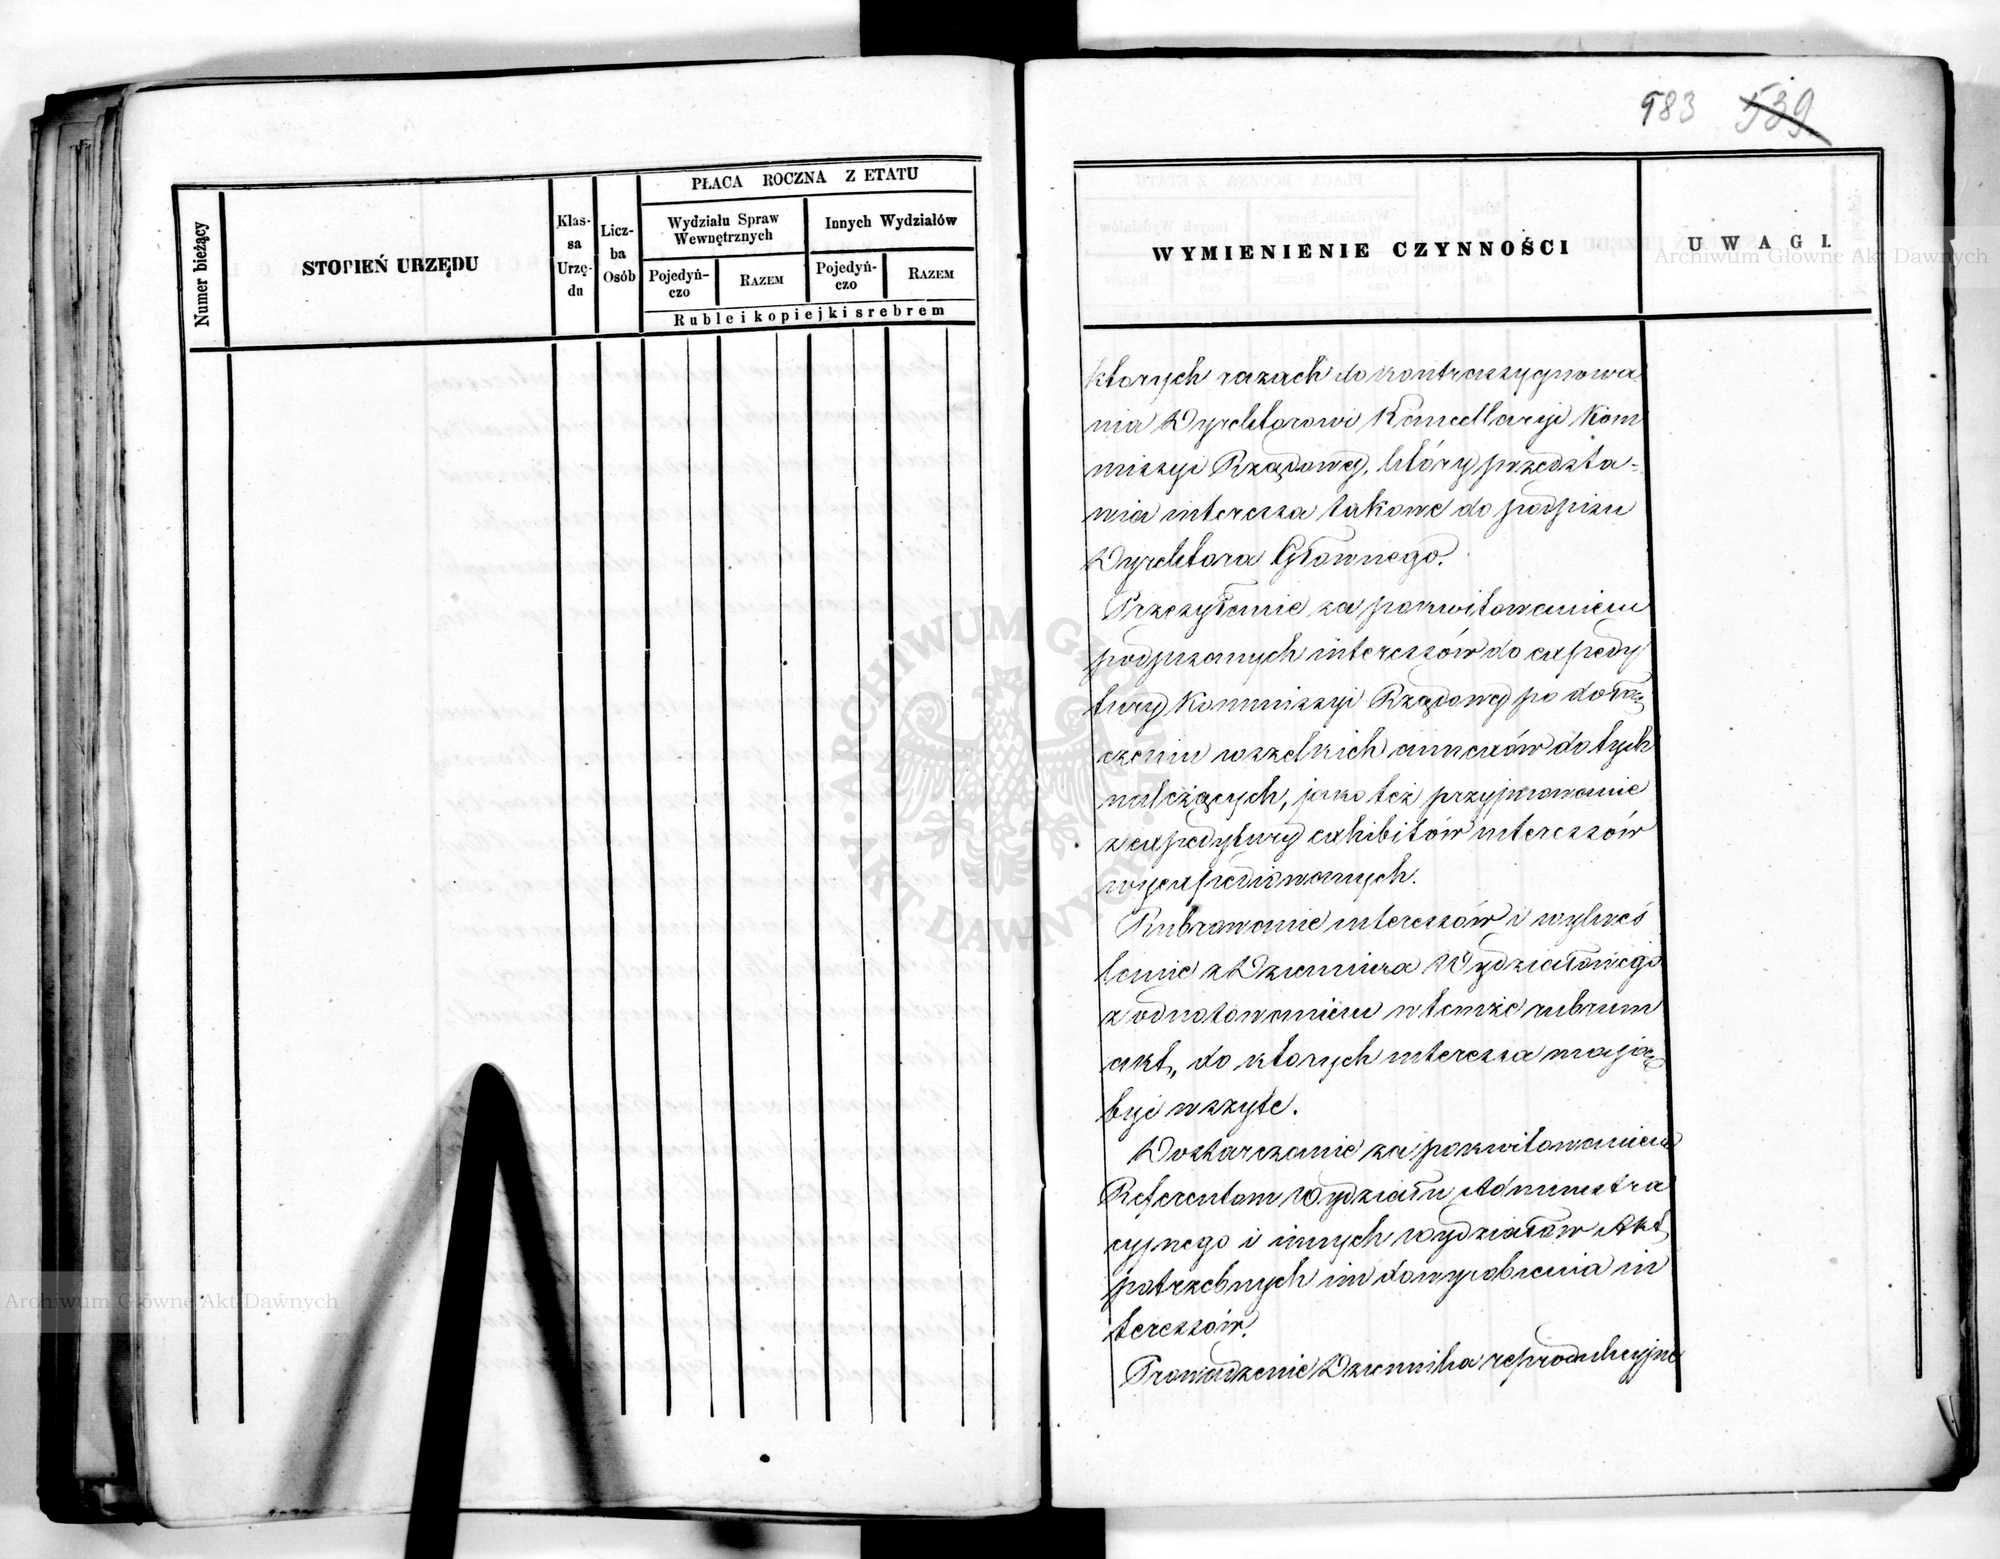 583 539
Numer bieżący
STOPIEŃ URZĘDU
Klas-
sa
Urzę-
du
Licz-
ba
Osób
PŁACA ROCZNA Z ETATU
Wydziału Spraw
Wewnętrznych
Innych Wydziałów
Pojedyń-
czo
RAZEM
Pojedyń-
czo
RAZEM
Ruble i kopiejki srebrem
WYMIENIENIE CZYNNOŚCI
UWAGI.
których razach do kontrassygnowa
nia Dyrektorowi Kancellaryi Kom
missyi Rządowej, który przedsta-
wia interessa takowe do podpisu
Dyrektora Głównego.
Przesyłanie za pokwitowaniem
podpisanych interessów do expedy
tury Kommissyi Rządowej po dołą
czeniu wszelkich annexów do tych
należących, jako też przyjmowanie
z expedytury exhibitów interessów
wyexpediowanych.
Rubrowanie interessów i wykreś
lenie z Dziennika Wydziałowego
z odnotowaniem w temże rubrum
akt, do których interessa mają
być wszyte.
Dostarczanie za pokwitowaniem
Referentom Wydziału Administra
cyjnego i innych wydziałów Akt
potrzebnych im do wyrobienia in
teressów.
Prowadzenie Dziennika reprodukcyjne
Archiwum Główne Akt Dawnych
Archiwum Główne Akt Dawnych
ARCHIWUM GŁÓWNE AKT DAWNYCH